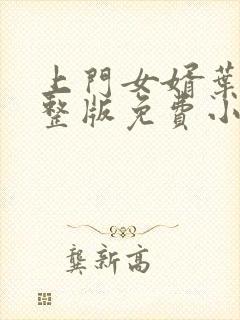 上門女婿葉
整版免費小
龔新高